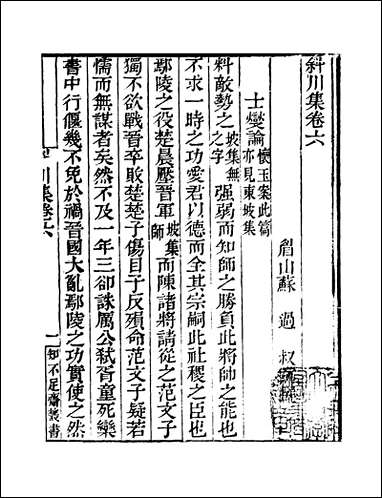 斜川集卷六
眉山蘇過叔
士燮論懷玉案此篇亦見東坡集
料敵勢之坡集無之字強弱而知師之勝負此將帥之能也
不求一時之功愛君以德而全其宗嗣此社稷之臣也
鄢陵之役楚晨壓晉軍坡集師而陳諸將請從之范文子
獨不欲戰晉卒敗楚楚子傷目子反殞命范文子疑若
懦而無謀者矣然不及一年三卻誅厲公弒胥童死欒
書中行偃幾不免於禍晉國大亂鄢陵之功實使之然
川集卷六
一
知不足齋叢書